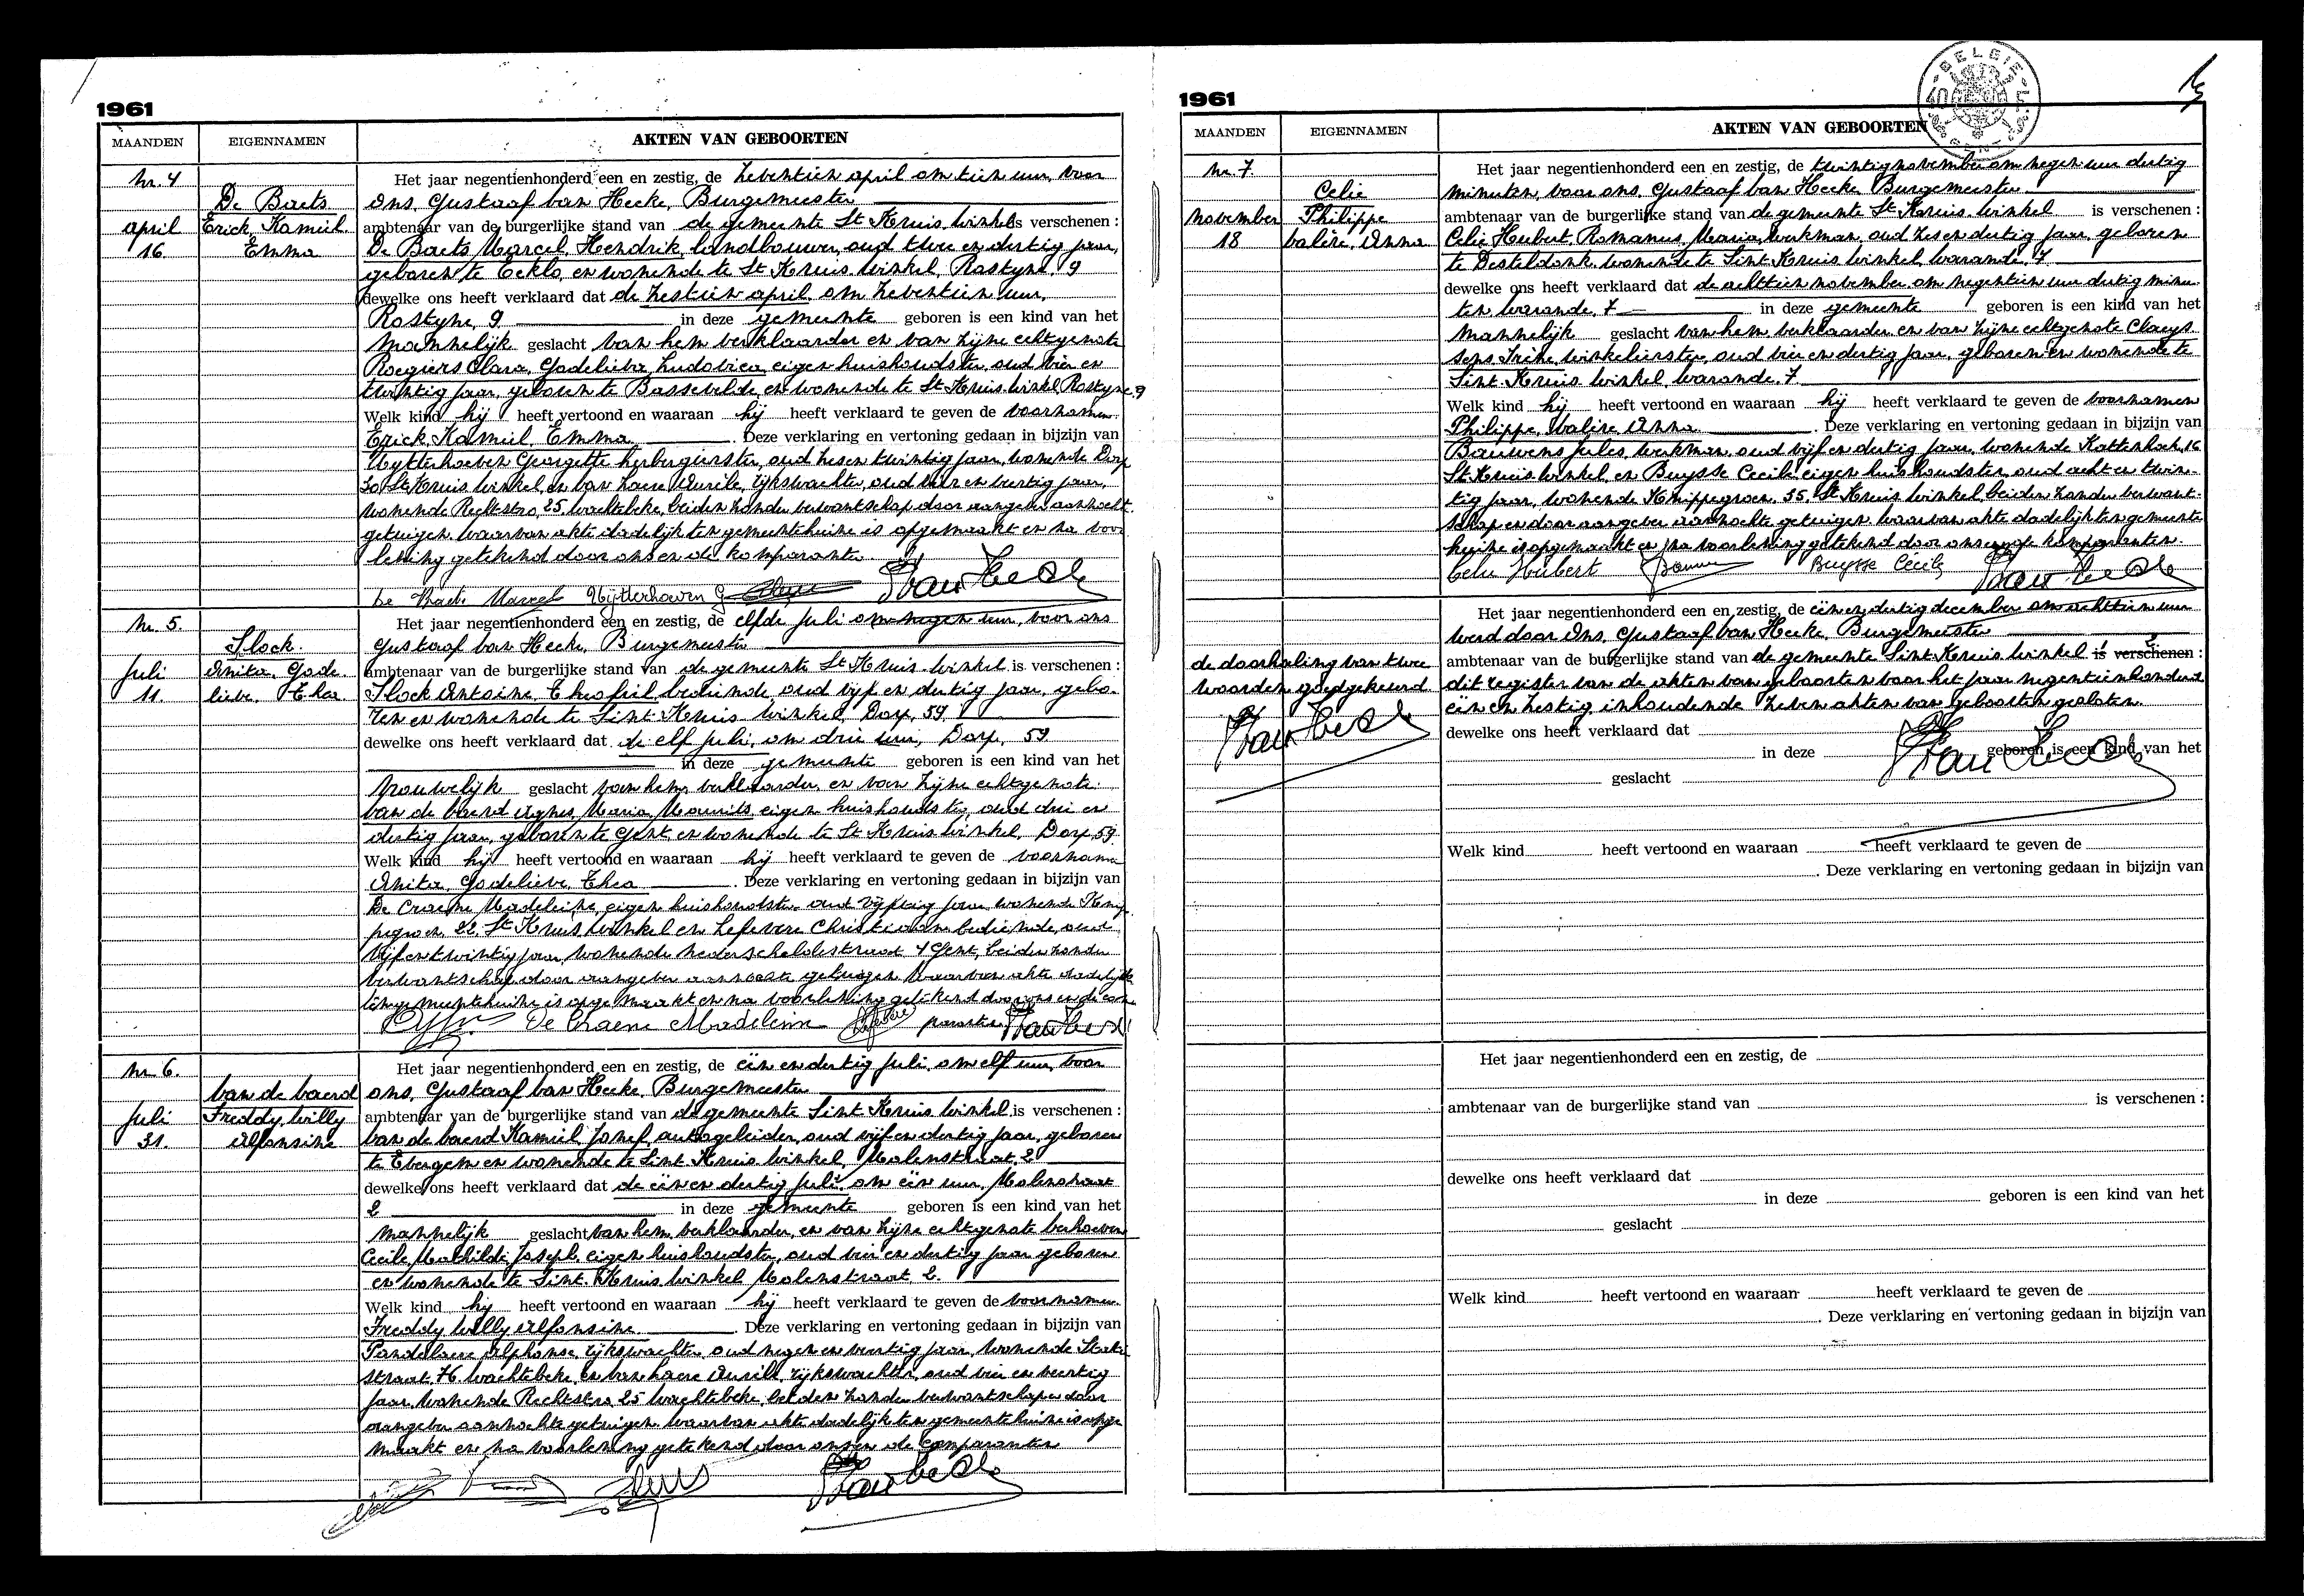 1961
MAANDEN EIGENNAMEN AKTEN VAN GEBOORTEN
Nr. 4 Het jaar negentienhonderd een en zestig, de zeventien april om tien uur, voor
De Baets ons, Gustaaf Van Hecke, Burgemeester
april Erick, Kamiel. ambtenaar van de burgerlijke stand van de gemeente St Kruis Winkel is verschenen :
16 Emma De Baets Marcel, Hendrik, landbouwer, oud twee en dertig jaar,
geboren te Eeklo, en wonende te St Kruis Winkel, Rostyne 9
dewelke ons heeft verklaard dat de zestien april, om zeventien uur,
Rostyne, 9 in deze gemeente geboren is een kind van het
Mannelijk geslacht van hem verklaarder en van zijne echtgenote
Roegiers Clara, Godelieva, Ludovica, eigen huishoudster, oud vier en
twintig jaar, geboren te Bassevelde, en wonende te St Kruis Winkel, Rostyne 9
Welk kind hij heeft vertoond en waaraan hij heeft verklaard te geven de voornamen
Erick, Kamiel, Emma. Deze verklaring en vertoning gedaan in bijzijn van
Uytterhoeven Georgette herbergierster, oud zes en twintig jaar, wonende Dorp
St Kruis Winkel, en Van Haere Aurile, rijkswachter, oud vier en veertig jaar,
wonende Rechtstro, 25, Wachtebeke, beiden zonder verwantschap door aangever aanzocht
getuigen. Waarvan akte dadelijk ten gemeentehuize is opgemaakt en na voor
lezing getekend door ons en de komparanten.
De Baets Marcel Uytterhoeven G VanHecke
Nr. 5. Het jaar negentienhonderd een en zestig, de elfde juli om negen uur, voor ons
Slock. Gustaaf Van Hecke, Burgemeester
Juli Anita, Gode ambtenaar van de burgerlijke stand van de gemeente St Kruis Winkel is verschenen :
11. lieve, Thea Slock Antoine, Theofiel bediende, oud vijf en dertig jaar, gebo-
ren en wonende te Sint Kruis Winkel, Dorp, 59
dewelke ons heeft verklaard dat de elf juli, om drie uur, Dorp, 59
in deze gemeente geboren is een kind van het
Vrouwelijk geslacht van hem verklaarder, en van zijne echtgenote
Van de Vaerd Agnes, Maria, Mauritz, eigen huishoudster, oud drie en
dertig jaar, geboren te Gent, en wonende te St Kruis Winkel, Dorp 59
Welk kind hij heeft vertoond en waaraan hij heeft verklaard te geven de voorname
Anita, Godelieve, Thea. Deze verklaring en vertoning gedaan in bijzijn van
De Craene Madeleine, eigen huishoudster oud vijftig jaar, wonende Knip-
pegroen 22 St Kruis Winkel en Lefevere Christiaan bediende, oud
vijf en twintig jaar, wonende Nederscheldestraat 4 Gent, beiden zonder
verwantschap door aangever aanzochte getuigen. Waarvan akte dadelijk
ten gemeentehuize is opgemaakt en na voorlezing getekend door ons en de com
De Craene Madeleine paranten VanHecke
Nr. 6. Het jaar negentienhonderd een en zestig, de één en dertig juli, om elf uur, voor
Van de Vaerd ons, Gustaaf Van Hecke, Burgemeester
Juli Freddy, Willy ambtenaar van de burgerlijke stand van de gemeente Sint Kruis Winkel, is verschenen :
31. Alfonsine Van de Vaerd Kamiel, Jozef, autogeleider, oud vijf en dertig jaar, geboren
te Evergem en wonende te Sint Kruis Winkel, Molenstraat, 2
dewelke ons heeft verklaard dat de één en dertig juli, om één uur, Molenstraat
2 in deze gemeente geboren is een kind van het
Mannelijk geslacht van hem, verklaarder, en van zijne echtgenote Verhoeven
Cecile, Mathilde, Joseph, eigen huishoudster, oud vier en dertig jaar geboren
en wonende te Sint Kruis Winkel Molenstraat, 2.
Welk kind hij heeft vertoond en waaraan hij heeft verklaard te geven de voornamen
Freddy Willy Alfonsine. Deze verklaring en vertoning gedaan in bijzijn van
Pandelaere Alphonse, rijkswachter, oud negen en veertig jaar, wonende
straat, Wachtebeke, en Van Haere Aurile, rijkswachter, oud vier en veertig
jaar, wonende Rechtstro, 25 Wachtebeke, beiden zonder verwantschap en door
aangever aanzochte getuigen. Waarvan akte dadelijk ten gemeentehuize is opge
maakt en na voorlezing getekend door ons en de comparanten
VanHecke
1961
BELGIE
MAANDEN EIGENNAMEN AKTEN VAN GEBOORTEN
Nr. 7 Het jaar negentienhonderd een en zestig, de twintig november om negen uur dertig
Celie minuten, voor ons, Gustaaf Van Hecke, Burgemeester
November Philippe ambtenaar van de burgerlijke stand van de gemeente St Kruis Winkel is verschenen :
18 Valère, Anna Celie Hubert, Romanus, Maria, werkman, oud zes en dertig jaar, geboren
te Desteldonk wonende te Sint Kruis Winkel, Warande, 7
dewelke ons heeft verklaard dat de achttien november, om negentien uur dertig minu-
ten Warande, 7 in deze gemeente geboren is een kind van het
Mannelijk geslacht van hem, verklaarder, en van zijne echtgenote Claeys
sens Irène, winkelierster, oud vier en dertig jaar, geboren en wonende te
Sint Kruis Winkel, Warande, 7
Welk kind hij heeft vertoond en waaraan hij heeft verklaard te geven de voornamen
Philippe, Valère Anna. Deze verklaring en vertoning gedaan in bijzijn van
Bauwens Jules, werkman, oud vijf en dertig jaar, wonende Kattenhoek, 16
St Kruis Winkel, en Buysse Cecile, eigen huishoudster, oud acht en twin-
tig jaar, wonende Knippegroen, 35, St Kruis Winkel beiden zonder verwant-
schap en door aangever aanzochte getuigen. Waarvan akte dadelijk ten gemeente
huize is opgemaakt en na voorlezing getekend door ons en de komparanten.
Celie Hubert Buysse Cécile VanHecke
Het jaar negentienhonderd een en zestig, de één en dertig december om achttien uur
werd door Ons, Gustaaf Van Hecke, Burgemeester
de doorhaling van twee ambtenaar van de burgerlijke stand van de gemeente Sint Kruis Winkel is verschenen :
woorden goedgekeurd dit register van de akten van geboorten voor het jaar negentienhonderd
één en zestig, inhoudende zeven akten van geboorten gesloten.
VanHecke dewelke ons heeft verklaard dat
in deze geboren is een kind van het
geslacht VanHecke
Welk kind heeft vertoond en waaraan heeft verklaard te geven de
. Deze verklaring en vertoning gedaan in bijzijn van
Het jaar negentienhonderd een en zestig, de
ambtenaar van de burgerlijke stand van is verschenen :
dewelke ons heeft verklaard dat
in deze geboren is een kind van het
geslacht
Welk kind heeft vertoond en waaraan heeft verklaard te geven de
. Deze verklaring en vertoning gedaan in bijzijn van